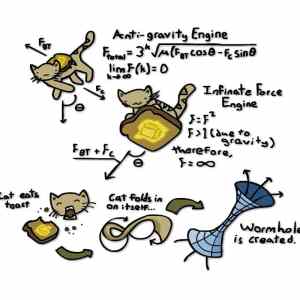 Anti-gravity Engine
F_BT
F_total = 3^k √μ(F_BT cosθ - F_c sinθ
lim F(k) = 0
k→∞
F_c
θ
Infinate Force
Engine
F = F²
F>1 (due to
gravity)
therefore,
F = ∞
F_BT + F_c
θ
Cat eats
toast
Cat folds in
on itself...
Wormhole
is created.